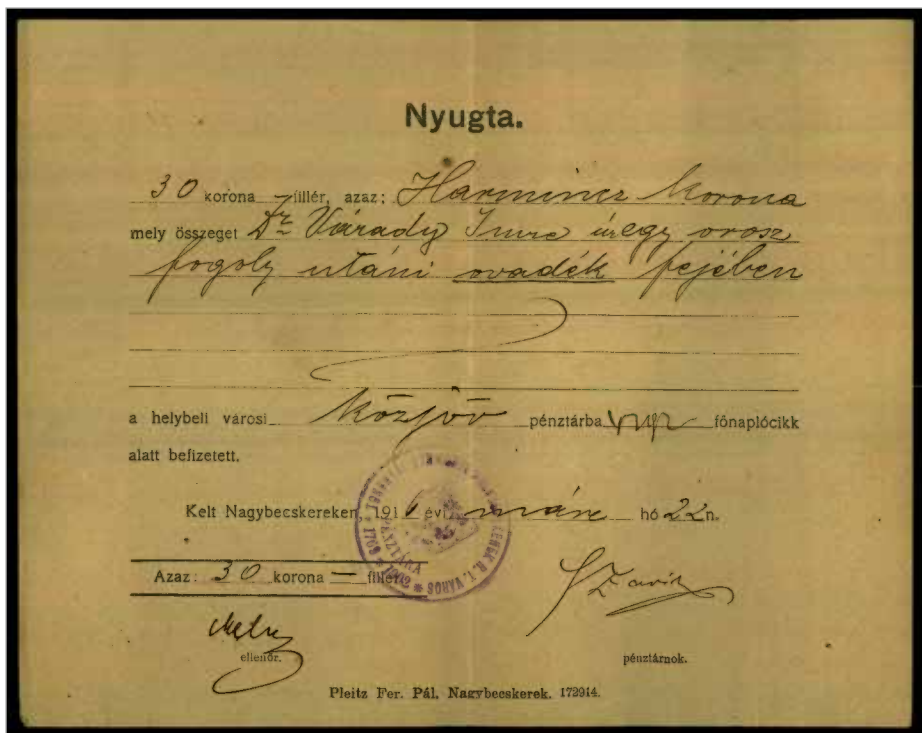 Nyugta.
30 korona – fillér, azaz: Harmincz korona
mely összeget Dr Várady Imre úr egy orosz
fogoly utáni ovadék fejében
a helybeli városi közjöv pénztárba főnaplócikk
alatt befizetett.
Kelt Nagybecskereken, 1916 évi márc hó 22 n.
Azaz: 30 korona — fillér.
ellenőr.
pénztárnok.
Pleitz Fer. Pál, Nagybecskerek. 172914.